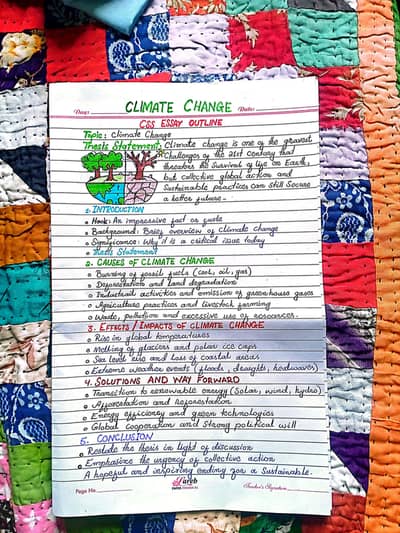 Day: CLIMATE CHANGE Date:
CSS ESSAY OUTLINE
Topic: Climate Change
Thesis Statement: Climate change is one of the gravest
Challenges of the 21st Century that
threatens the Survival of life on Earth,
but collective global action and
Sustainable practices can still Secure
a better future.
1. INTRODUCTION
Hook: An impressive fact or quote
Background: Brief overview of climate change
Significance: Why it is a critical issue today
Thesis Statement
2. CAUSES OF CLIMATE CHANGE
Burning of fossil fuels (coal, oil, gas)
Deforestation and land degradation
Industrial activities and emission of greenhouse gases
Agriculture practices and livestock farming
Waste, pollution and excessive use of resources.
3. EFFECTS / IMPACTS OF CLIMATE CHANGE
Rise in global temperatures
Melting of glaciers and polar ice caps
Sea level rise and loss of coastal areas
Extreme weather events (floods, draughts, heatwaves)
4. SOLUTIONS AND WAY FORWARD
Transition to renewable energy (Solar, wind, hydro)
Afforestation and Reforestation
Energy efficiency and green technologies
Global Cooperation and Strong political will
5. CONCLUSION
Restate the thesis in light of discussion
Emphasize the urgency of collective action
A hopeful and inspiring ending for a Sustainable.
Page No. Teacher's Signature